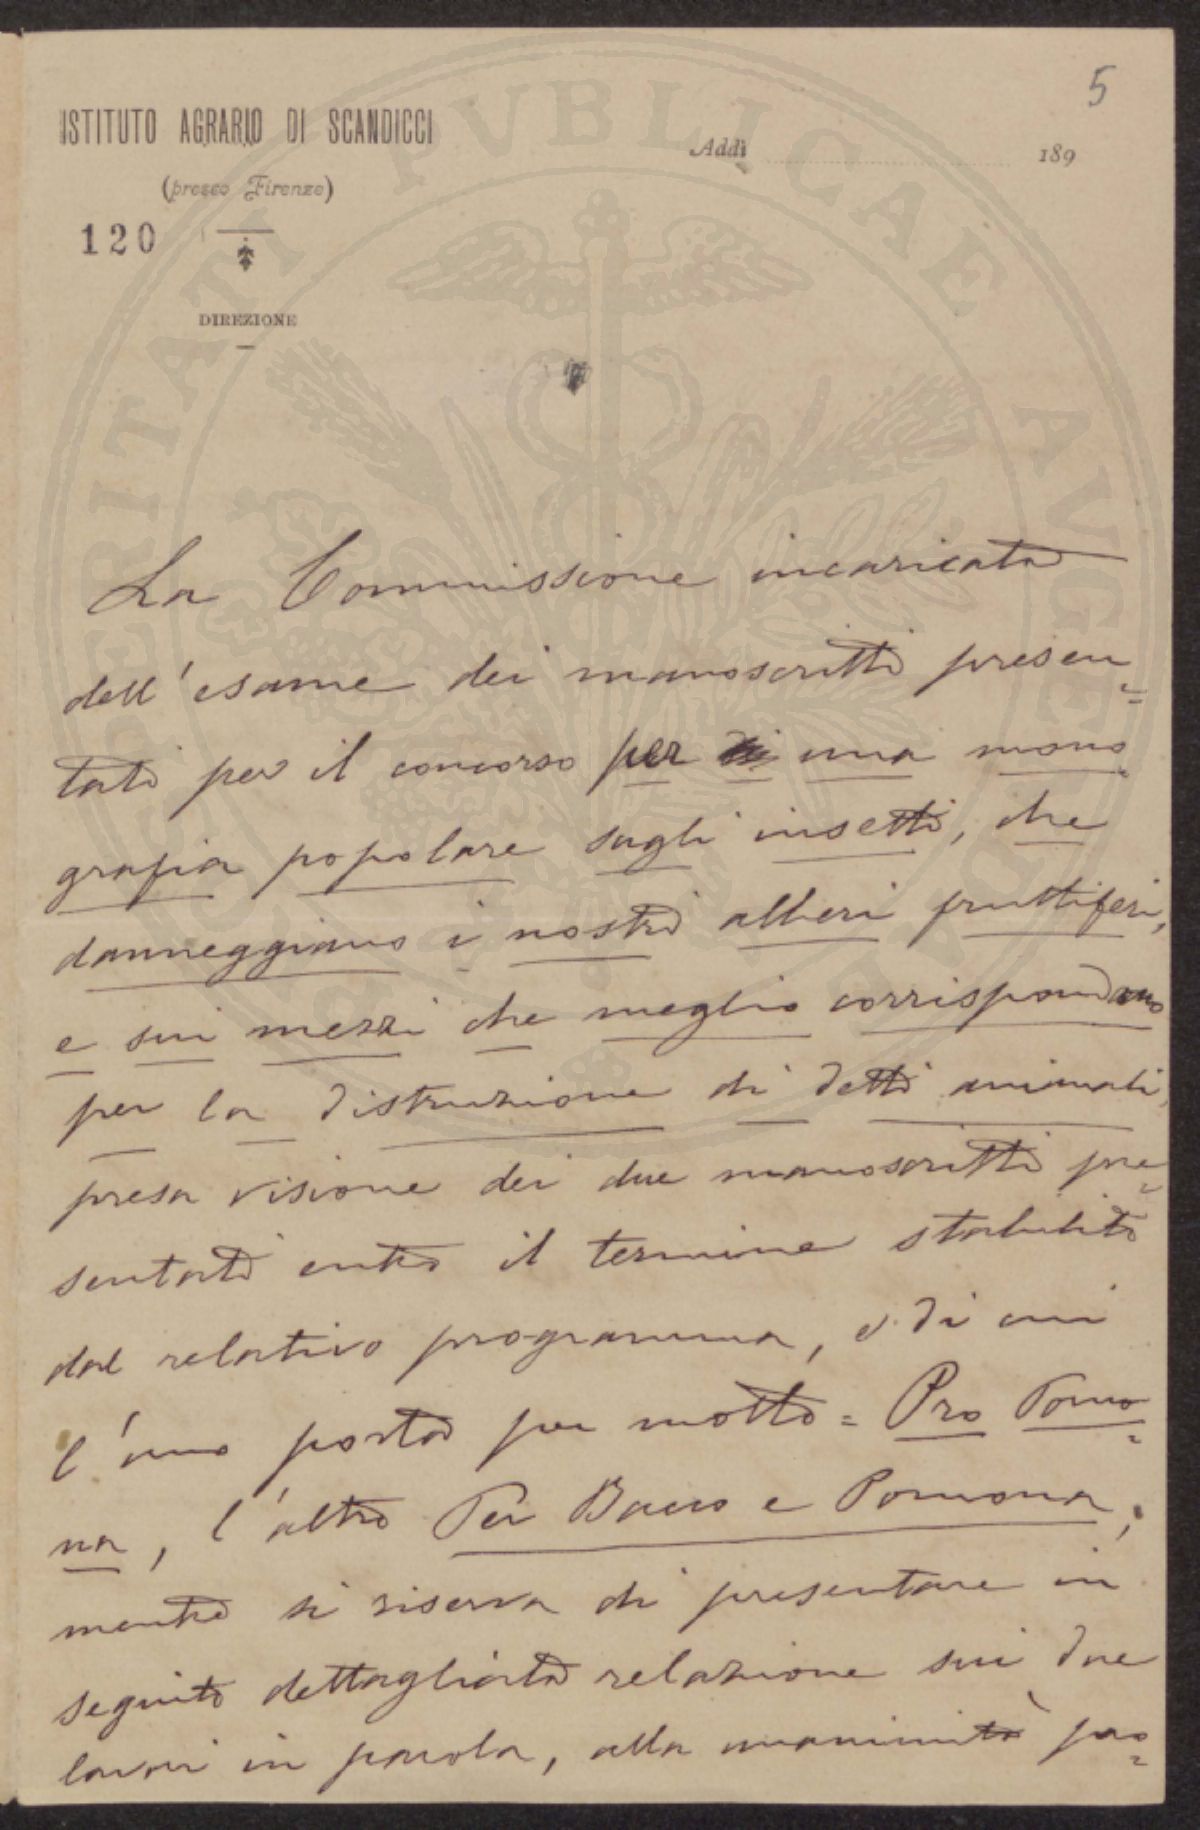 5
ISTITUTO AGRARIO DI SCANDICCI
Addì 189
(presso Firenze)
120
DIREZIONE
La Commissione incaricata
dell'esame dei manoscritti presen=
tati per il concorso per una mono=
grafia popolare sugli insetti, che
danneggiano i nostri alberi fruttiferi,
e sui mezzi che meglio corrispondano
per la distruzione di detti animali,
presa visione dei due manoscritti pre=
sentati entro il termine stabilito
dal relativo programma, e di cui
l'uno porta per motto = Pro Pomo=
na, l'altro Per Bacco e Pomona;
mentre si riserva di presentare in
seguito dettagliata relazione sui due
lavori in parola, alla unanimità pro=